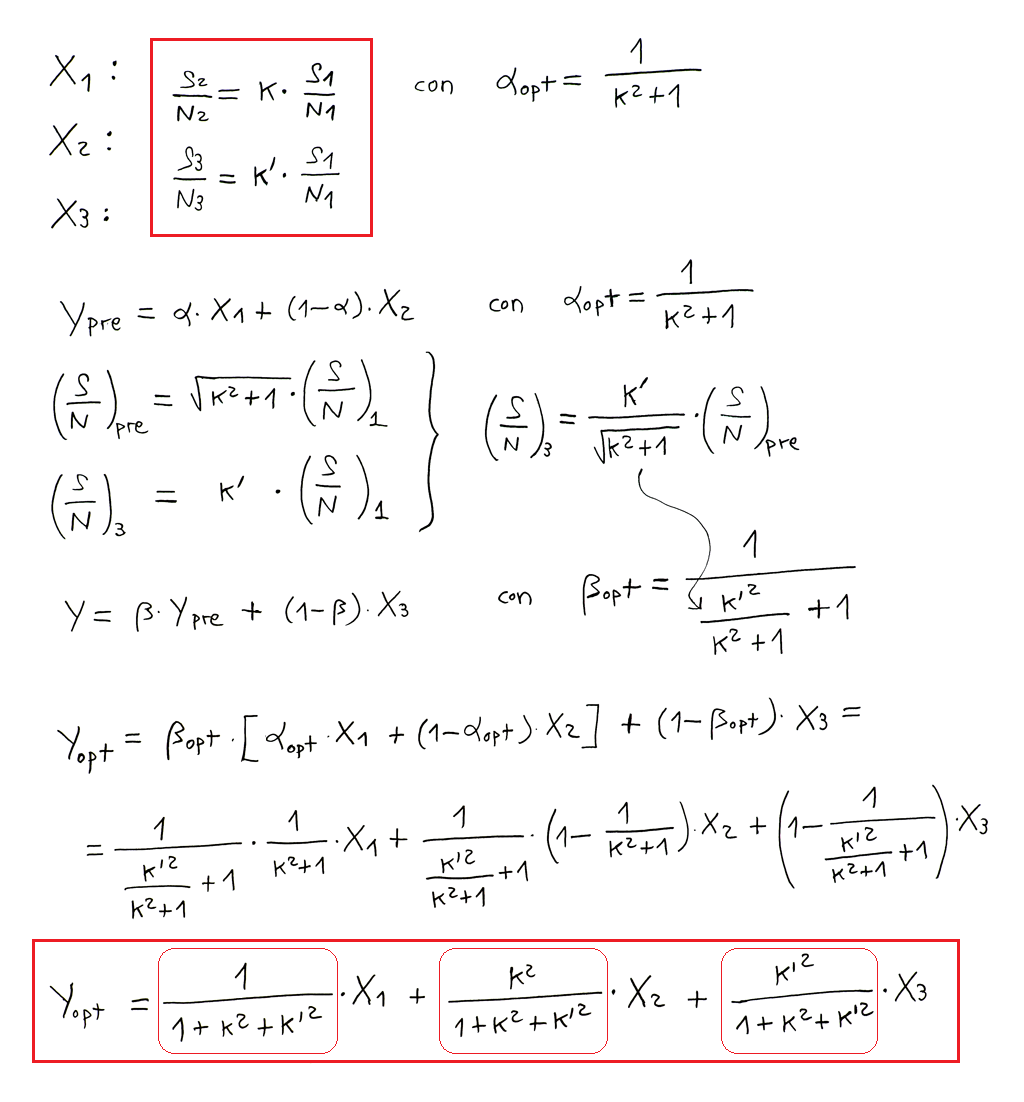 X₁ : S₂/N₂ = K · S₁/N₁ con α_opt = 1/(K²+1)
X₂ :
S₃/N₃ = K′ · S₁/N₁
X₃ :
Y_pre = α · X₁ + (1−α) · X₂ con α_opt = 1/(K²+1)
(S/N)_pre = √(K²+1) · (S/N)₁
(S/N)₃ = K′/√(K²+1) · (S/N)_pre
(S/N)₃ = K′ · (S/N)₁
Y = β · Y_pre + (1−β) · X₃ con β_opt = 1/(K′²/(K²+1) + 1)
Y_opt = β_opt · [α_opt · X₁ + (1−α_opt) · X₂] + (1−β_opt) · X₃ =
= 1/(K′²/(K²+1) + 1) · 1/(K²+1) · X₁ + 1/(K′²/(K²+1) + 1) · (1 − 1/(K²+1)) · X₂ + (1 − 1/(K′²/(K²+1) + 1)) · X₃
Y_opt = 1/(1+K²+K′²) · X₁ + K²/(1+K²+K′²) · X₂ + K′²/(1+K²+K′²) · X₃